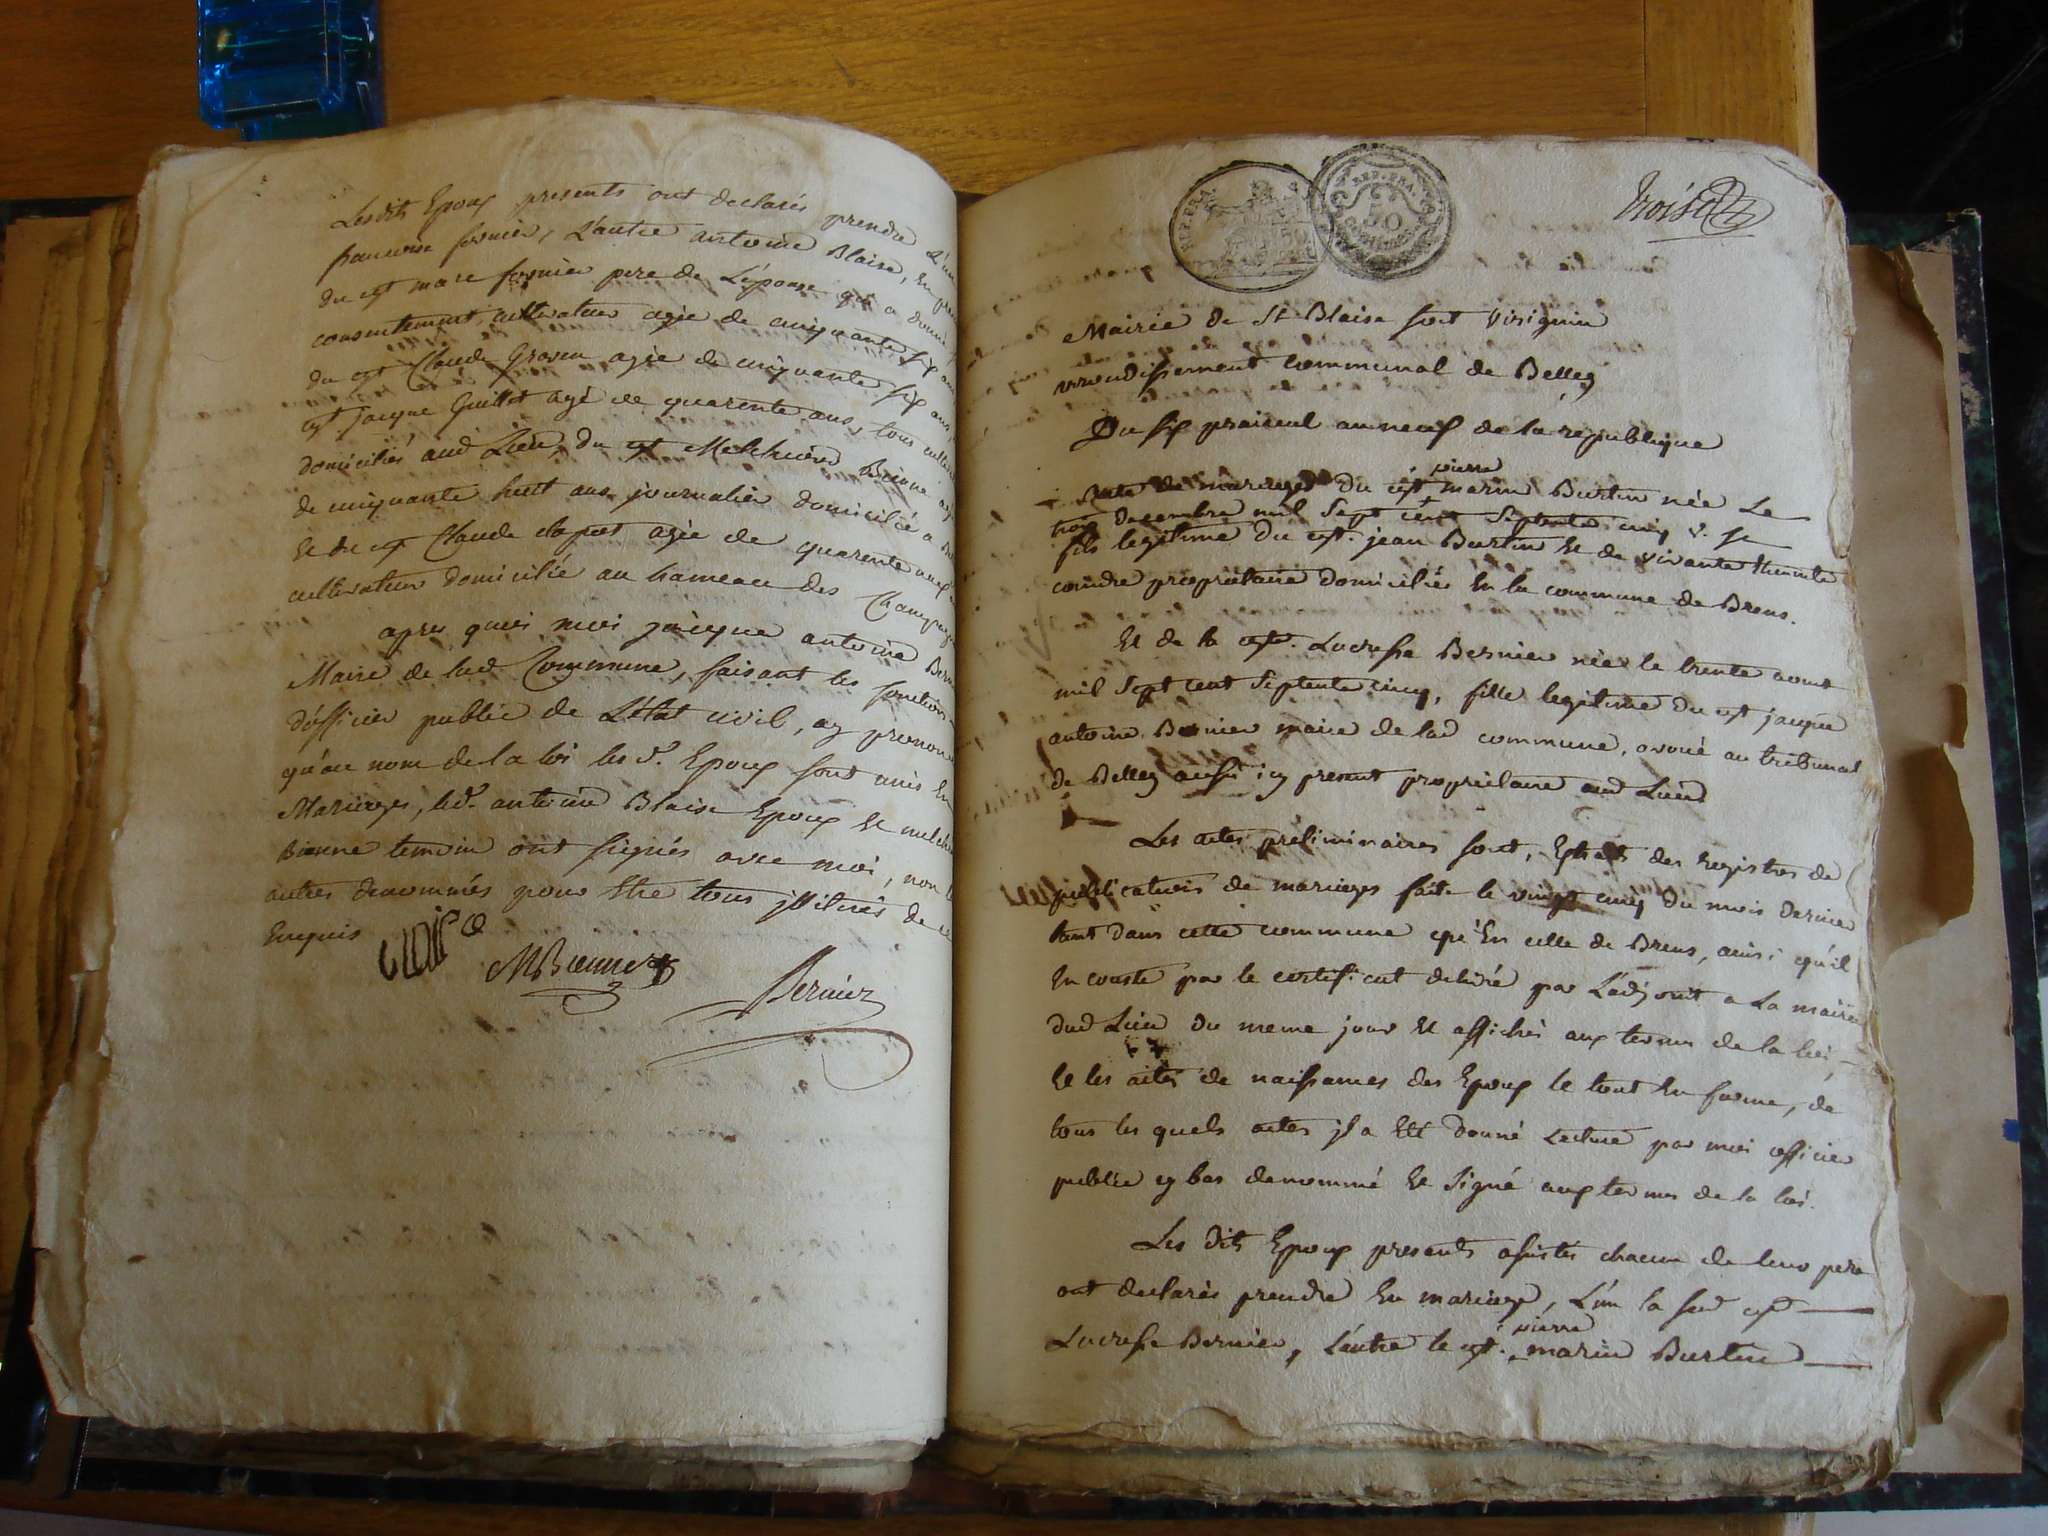 Les dits Epoux presents ont declarés prendre L'un
francoise fornier, L'autre antoine Blaise, En
du cyt marc fornier pere de L'épouse qui a donné
consentement, cultivateur agée de cinquante six ans
du cyt Claude agée de cinquante six ans,
cyt jacque Guillot agé de quarente ans, tous
domiciliés aud Lieu, du cyt Melchiord Bienne
de cinquante huit ans journalier domicilié a
Et du cyt Claude agée de quarente neuf
cultivateur domicilié au hameau des
apres quoi moi jacque antoine
Maire de lad Commune, faisant les fonctions
d'officier public de L'état civil, ay
qu'au nom de la loi les d. Epoux sont unis En
Mariages, led. antoine Blaise Epoux Et
Bienne temoin ont signés avec moi, non
autres denommés pour Etre tous jllitérés de ce
Enquis
MBienne
Bernier
REP. FRA.
REP. FRA.
50
Mairie de St Blaise sont Virignin
arrondissement communal de Belley
Du six prairial an neuf de la republique
pierre
Acte de mariage du cyt marin Burtin née Le
trois decembre mil Sept cent Septente cinq v. st
fils legitime du cyt. jean Burtin Et de vivante
coindre propriétaire domiciliés En la commune de Brens.
Et de la cyte. Lucresse Bernier née le trente aout
mil Sept cent Septente cinq, fille legitime du cyt jacque
antoine Bernier maire de lad commune, avoué au tribunal
de Belley aussi icy present propriétaire aud Lieu
Les actes préliminaires sont, Extrait des registres de
publications de mariages faite le vingt cinq du mois dernier
tant dans cette commune qu'En celle de Brens, ainsi qu'il
En conste par le certificat délivré par L'adjoint a La mairie
dud Lieu du meme jour Et affichés aux termes de la loi,
Et les actes de naissances des Epoux le tout En forme, de
tous les quels actes jl a Eté donné Lecture par moi officier
public cy bas denommé Et Signé aux termes de la loi.
Les dits Epoux presents assistés chacun de leur pere
ont declarés prendre En mariage, L'un la sud cyte
Lucresse Bernier, L'autre le cyt. marin Burtin
pierre